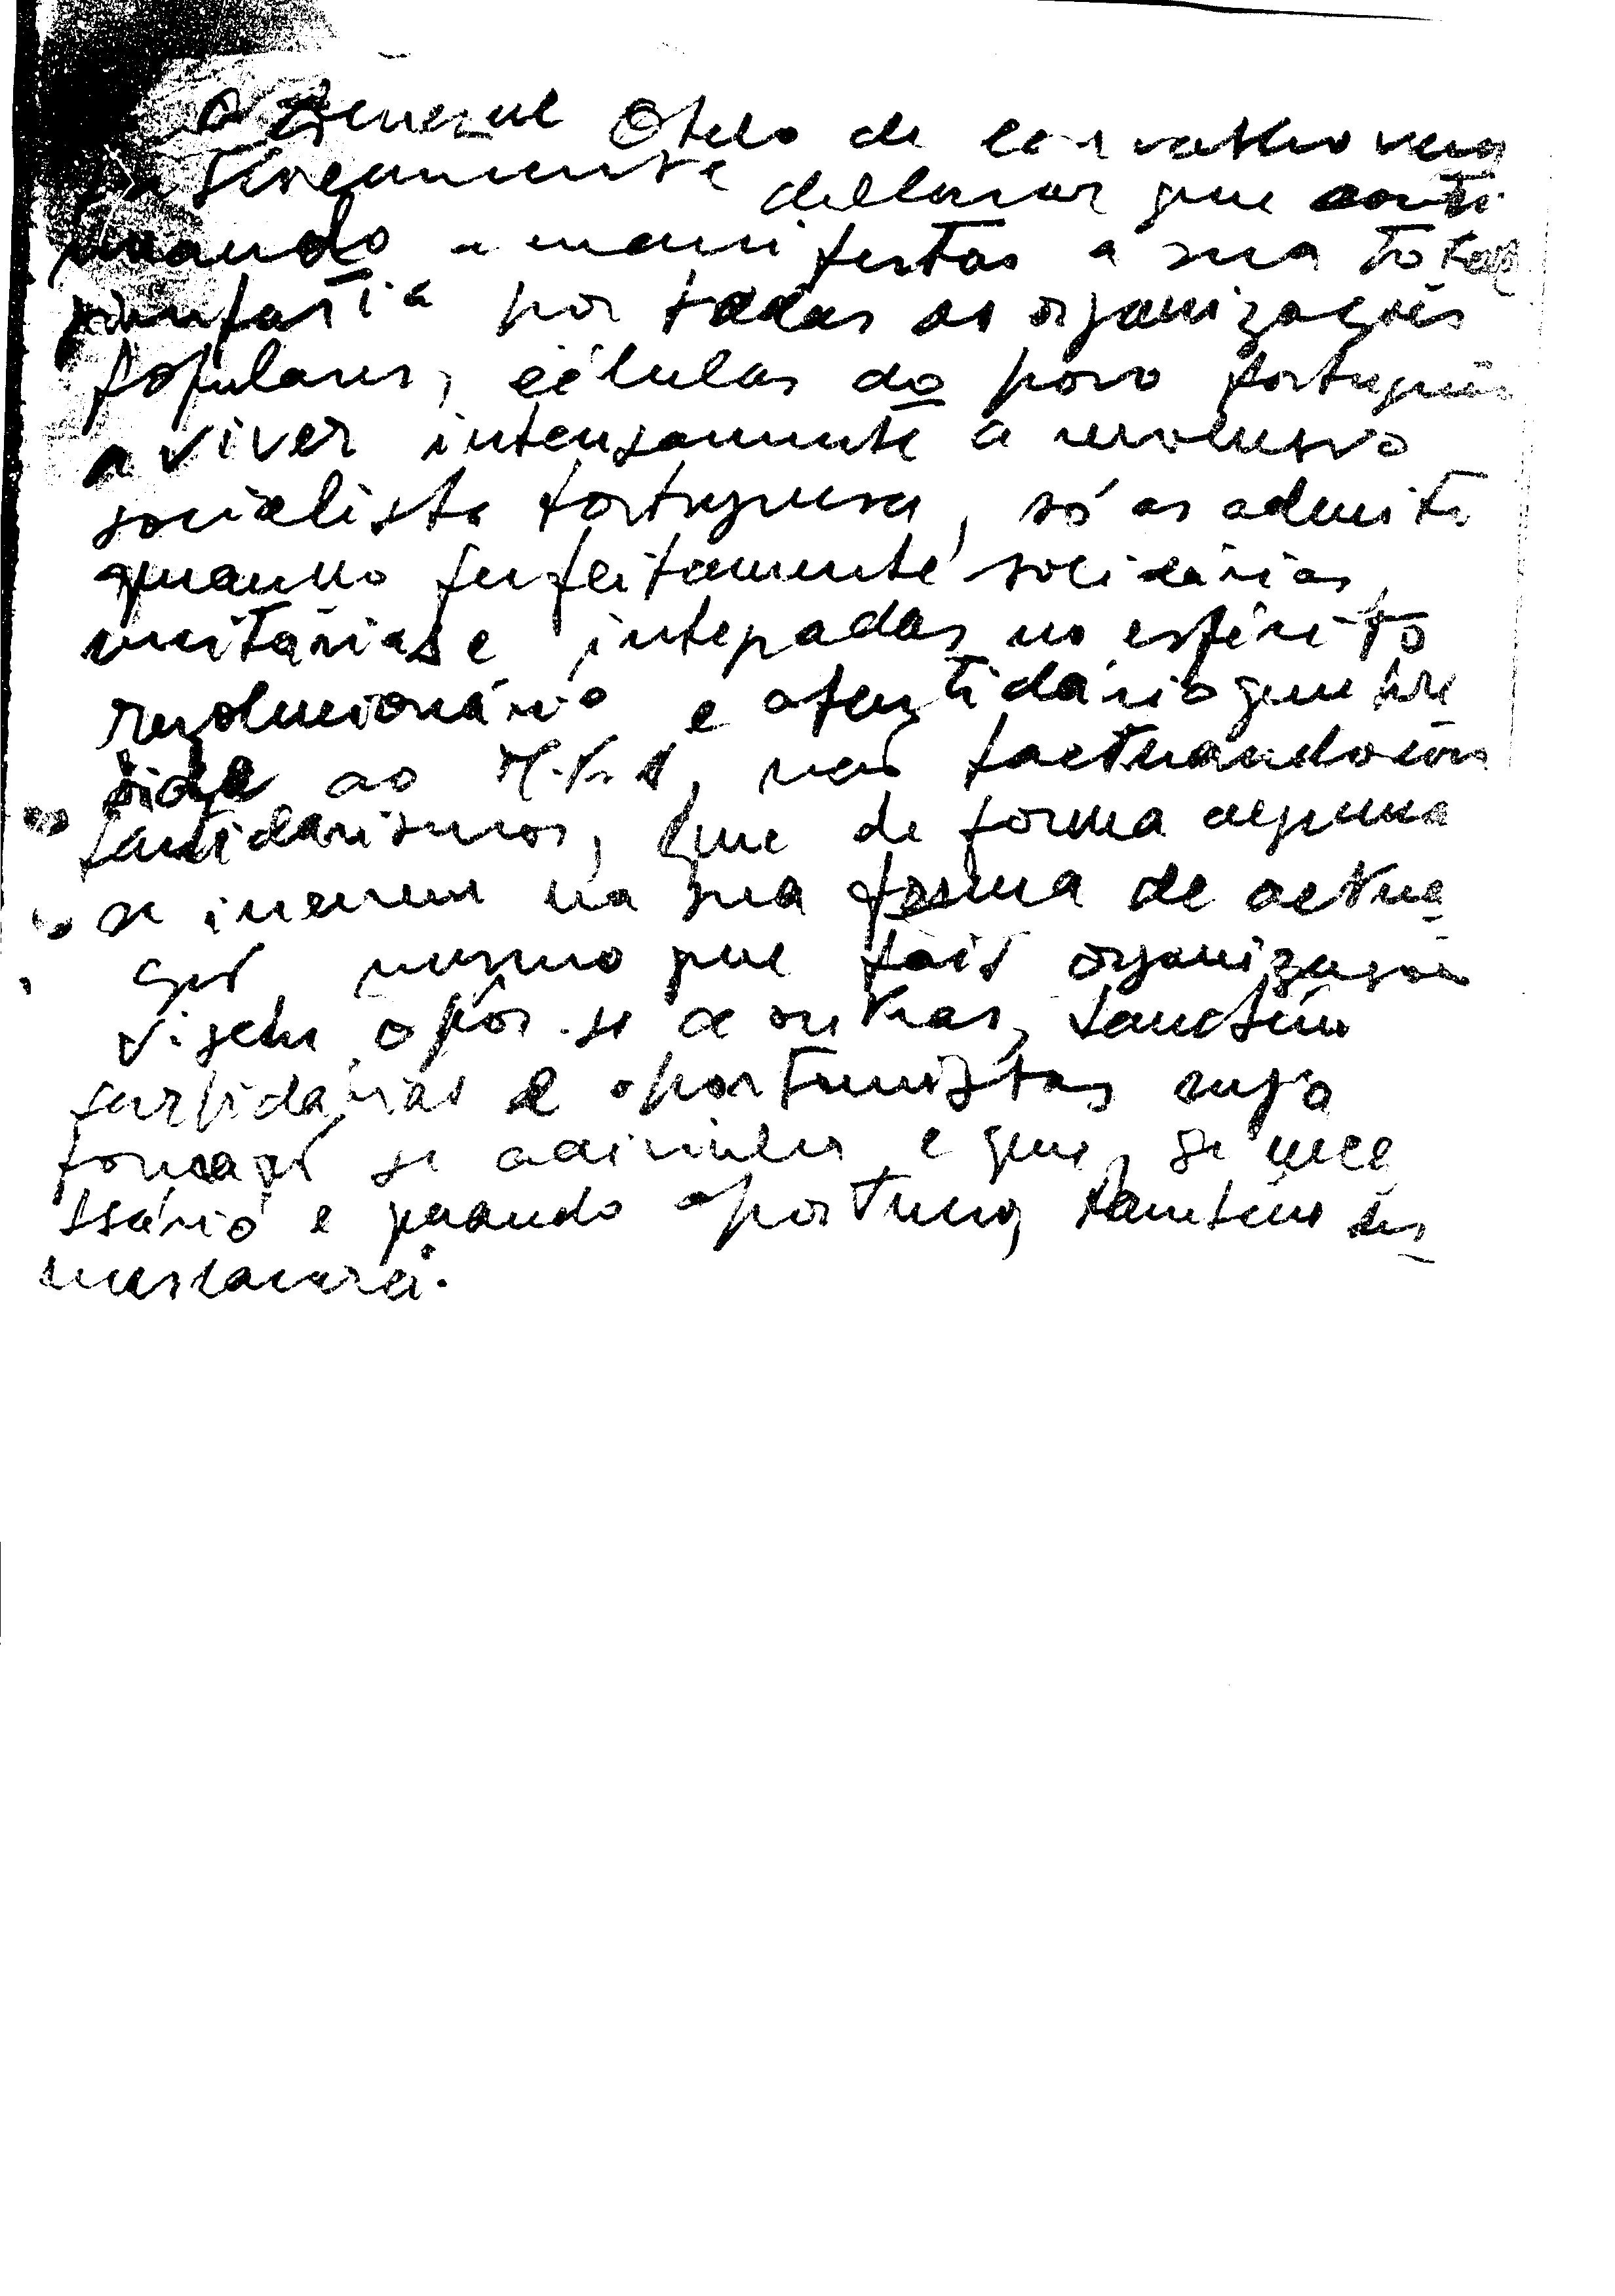 O General Otelo de Carvalho vem
publicamente declarar que conti
nuando a manifestar a sua total
simpatia por todas as organizações
populares, células do povo português
a viver intensamente a revolução
socialista portuguesa, só as admite
quando perfeitamente solidárias,
unitárias e integradas no espírito
revolucionário e apartidário que pre
side ao M.F.A, não pactuando com
partidarismos, que de forma alguma
se inserem na sua forma de actua
ção, mesmo que tais organizações
visem opôr-se a outras, também
partidárias e oportunistas cuja
formação se adivinha e que, se nece
ssário e quando oportuno, também des
mascarará.